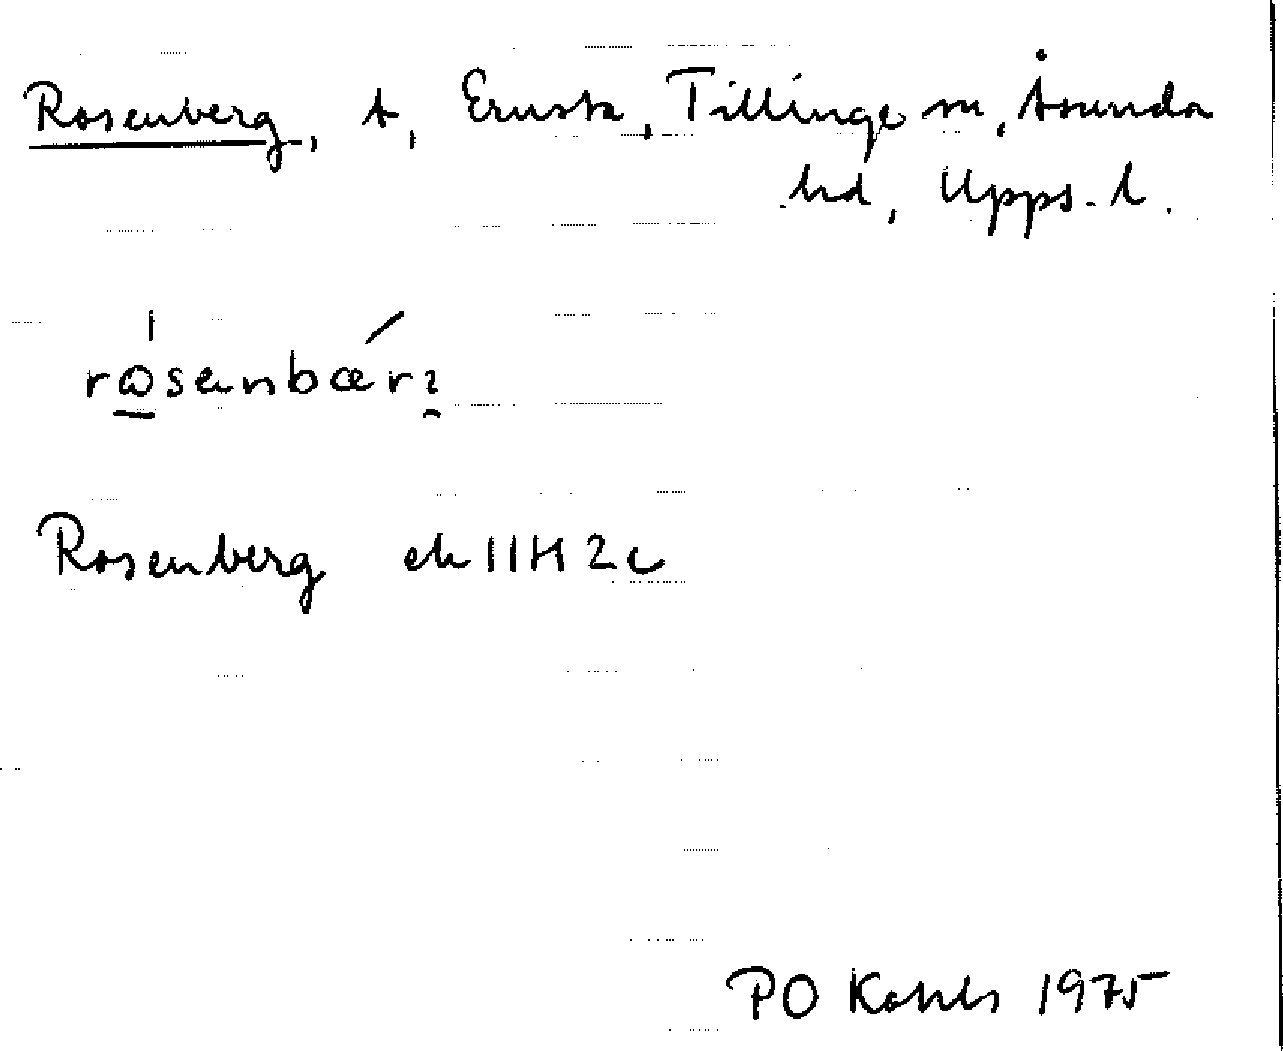 Rosenberg, t, Ernsta, Tillinge sn, Åsunda
hd, Upps. l.
Rosenberg ek 11H 2c
PO 1975